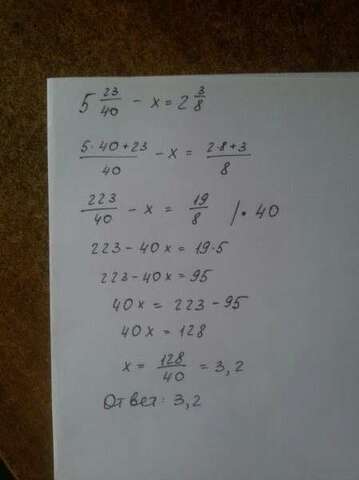 5 23/40 - x = 2 3/8
(5·40+23)/40 - x = (2·8+3)/8
223/40 - x = 19/8 /·40
223 - 40x = 19·5
223 - 40x = 95
40x = 223 - 95
40x = 128
x = 128/40 = 3,2
Ответ: 3,2